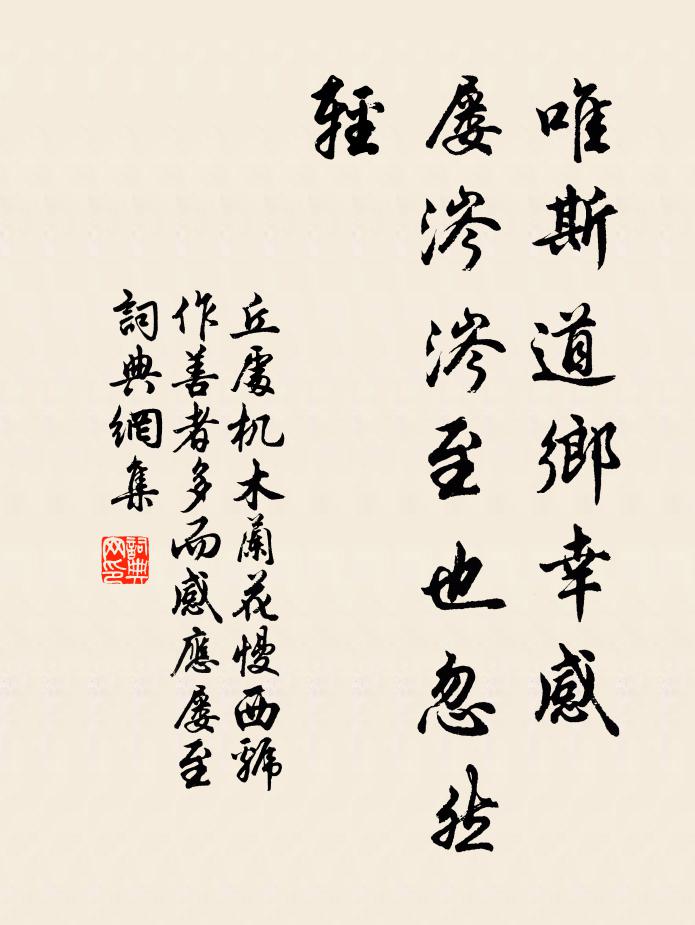 唯斯道鄉幸感
屢涔涔至也忽然
輕
丘處机木蘭花慢西虢
作善者多而感應屢至
詞典網集
詞典网印